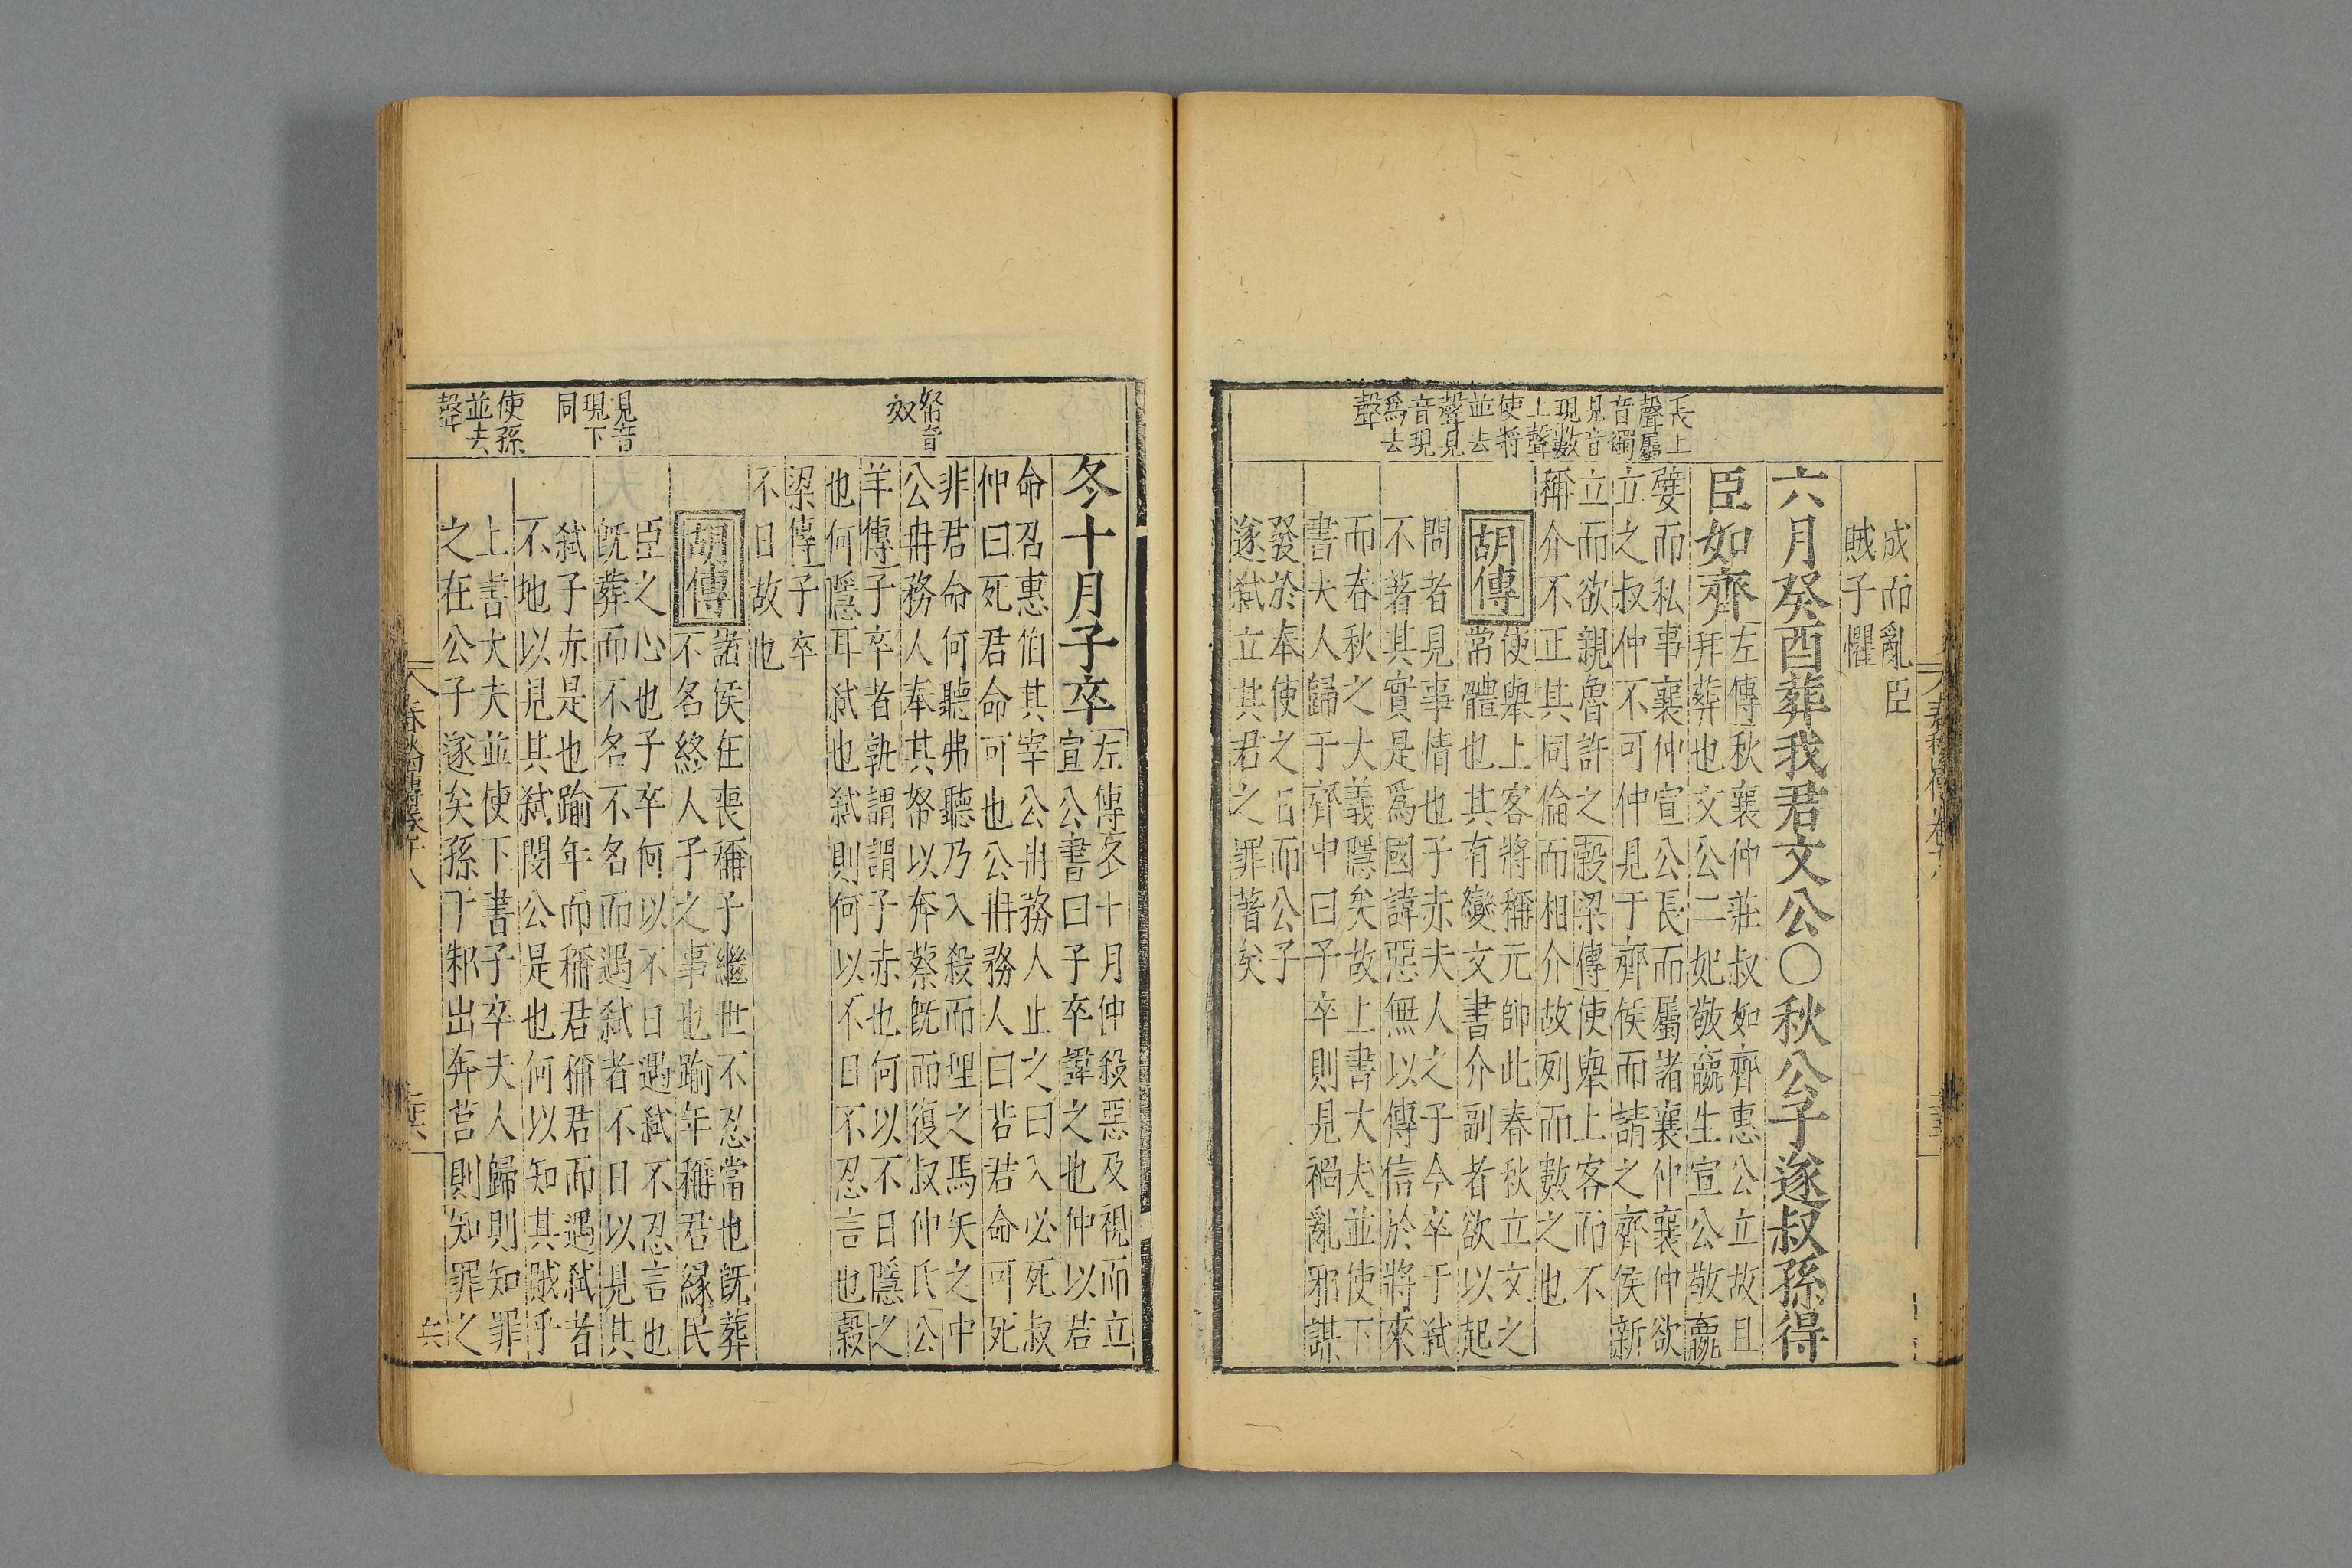 長上
聲屬
音燭
見音
現數
上聲
使將
並去
聲見
音現
爲去
聲
成而亂臣
賊子懼
六月癸酉葬我君文公○秋公子遂叔孫得
臣如齊
左傳秋襄仲莊叔如齊惠公立故且
拜葬也文公二妃敬嬴生宣公敬嬴
嬖而私事襄仲宣公長而屬諸襄仲襄仲欲
立之叔仲不可仲見于齊侯而請之齊侯新
立而欲親魯許之穀梁傳使舉上客而不
稱介不正其同倫而相介故列而數之也
胡傳
使舉上客將稱元帥此春秋立文之
常體也其有變文書介副者欲以起
問者見事情也子赤夫人之子今卒于弒
不著其實是爲國諱惡無以傳信於將來
而春秋之大義隱矣故上書大夫並使下
書夫人歸于齊中曰子卒則見禍亂邪謀
發於奉使之日而公子
遂弒立其君之罪著矣
帑音
奴
見音
現下
同
使孫
並去
聲
冬十月子卒
左傳冬十月仲殺惡及視而立
宣公書曰子卒諱之也仲以君
命召惠伯其宰公冉務人止之曰入必死叔
仲曰死君命可也公冉務人曰若君命可死
非君命何聽弗聽乃入殺而埋之馬矢之中
公冉務人奉其帑以奔蔡既而復叔仲氏公
羊傳子卒者孰謂謂子赤也何以不日隱之
也何隱耳弒也弒則何以不日不忍言也穀
梁傳子卒
不日故也
胡傳
諸侯在喪稱子繼世不忍當也既葬
不名終人子之事也踰年稱君緣民
臣之心也子卒何以不日遇弒不忍言也
既葬而不名不名而遇弒者不日以見其
弒子赤是也踰年而稱君稱君而遇弒者
不地以見其弒閔公是也何以知其賊乎
上書大夫並使下書子卒夫人歸則知罪
之在公子遂矣孫于邾出奔莒則知罪之